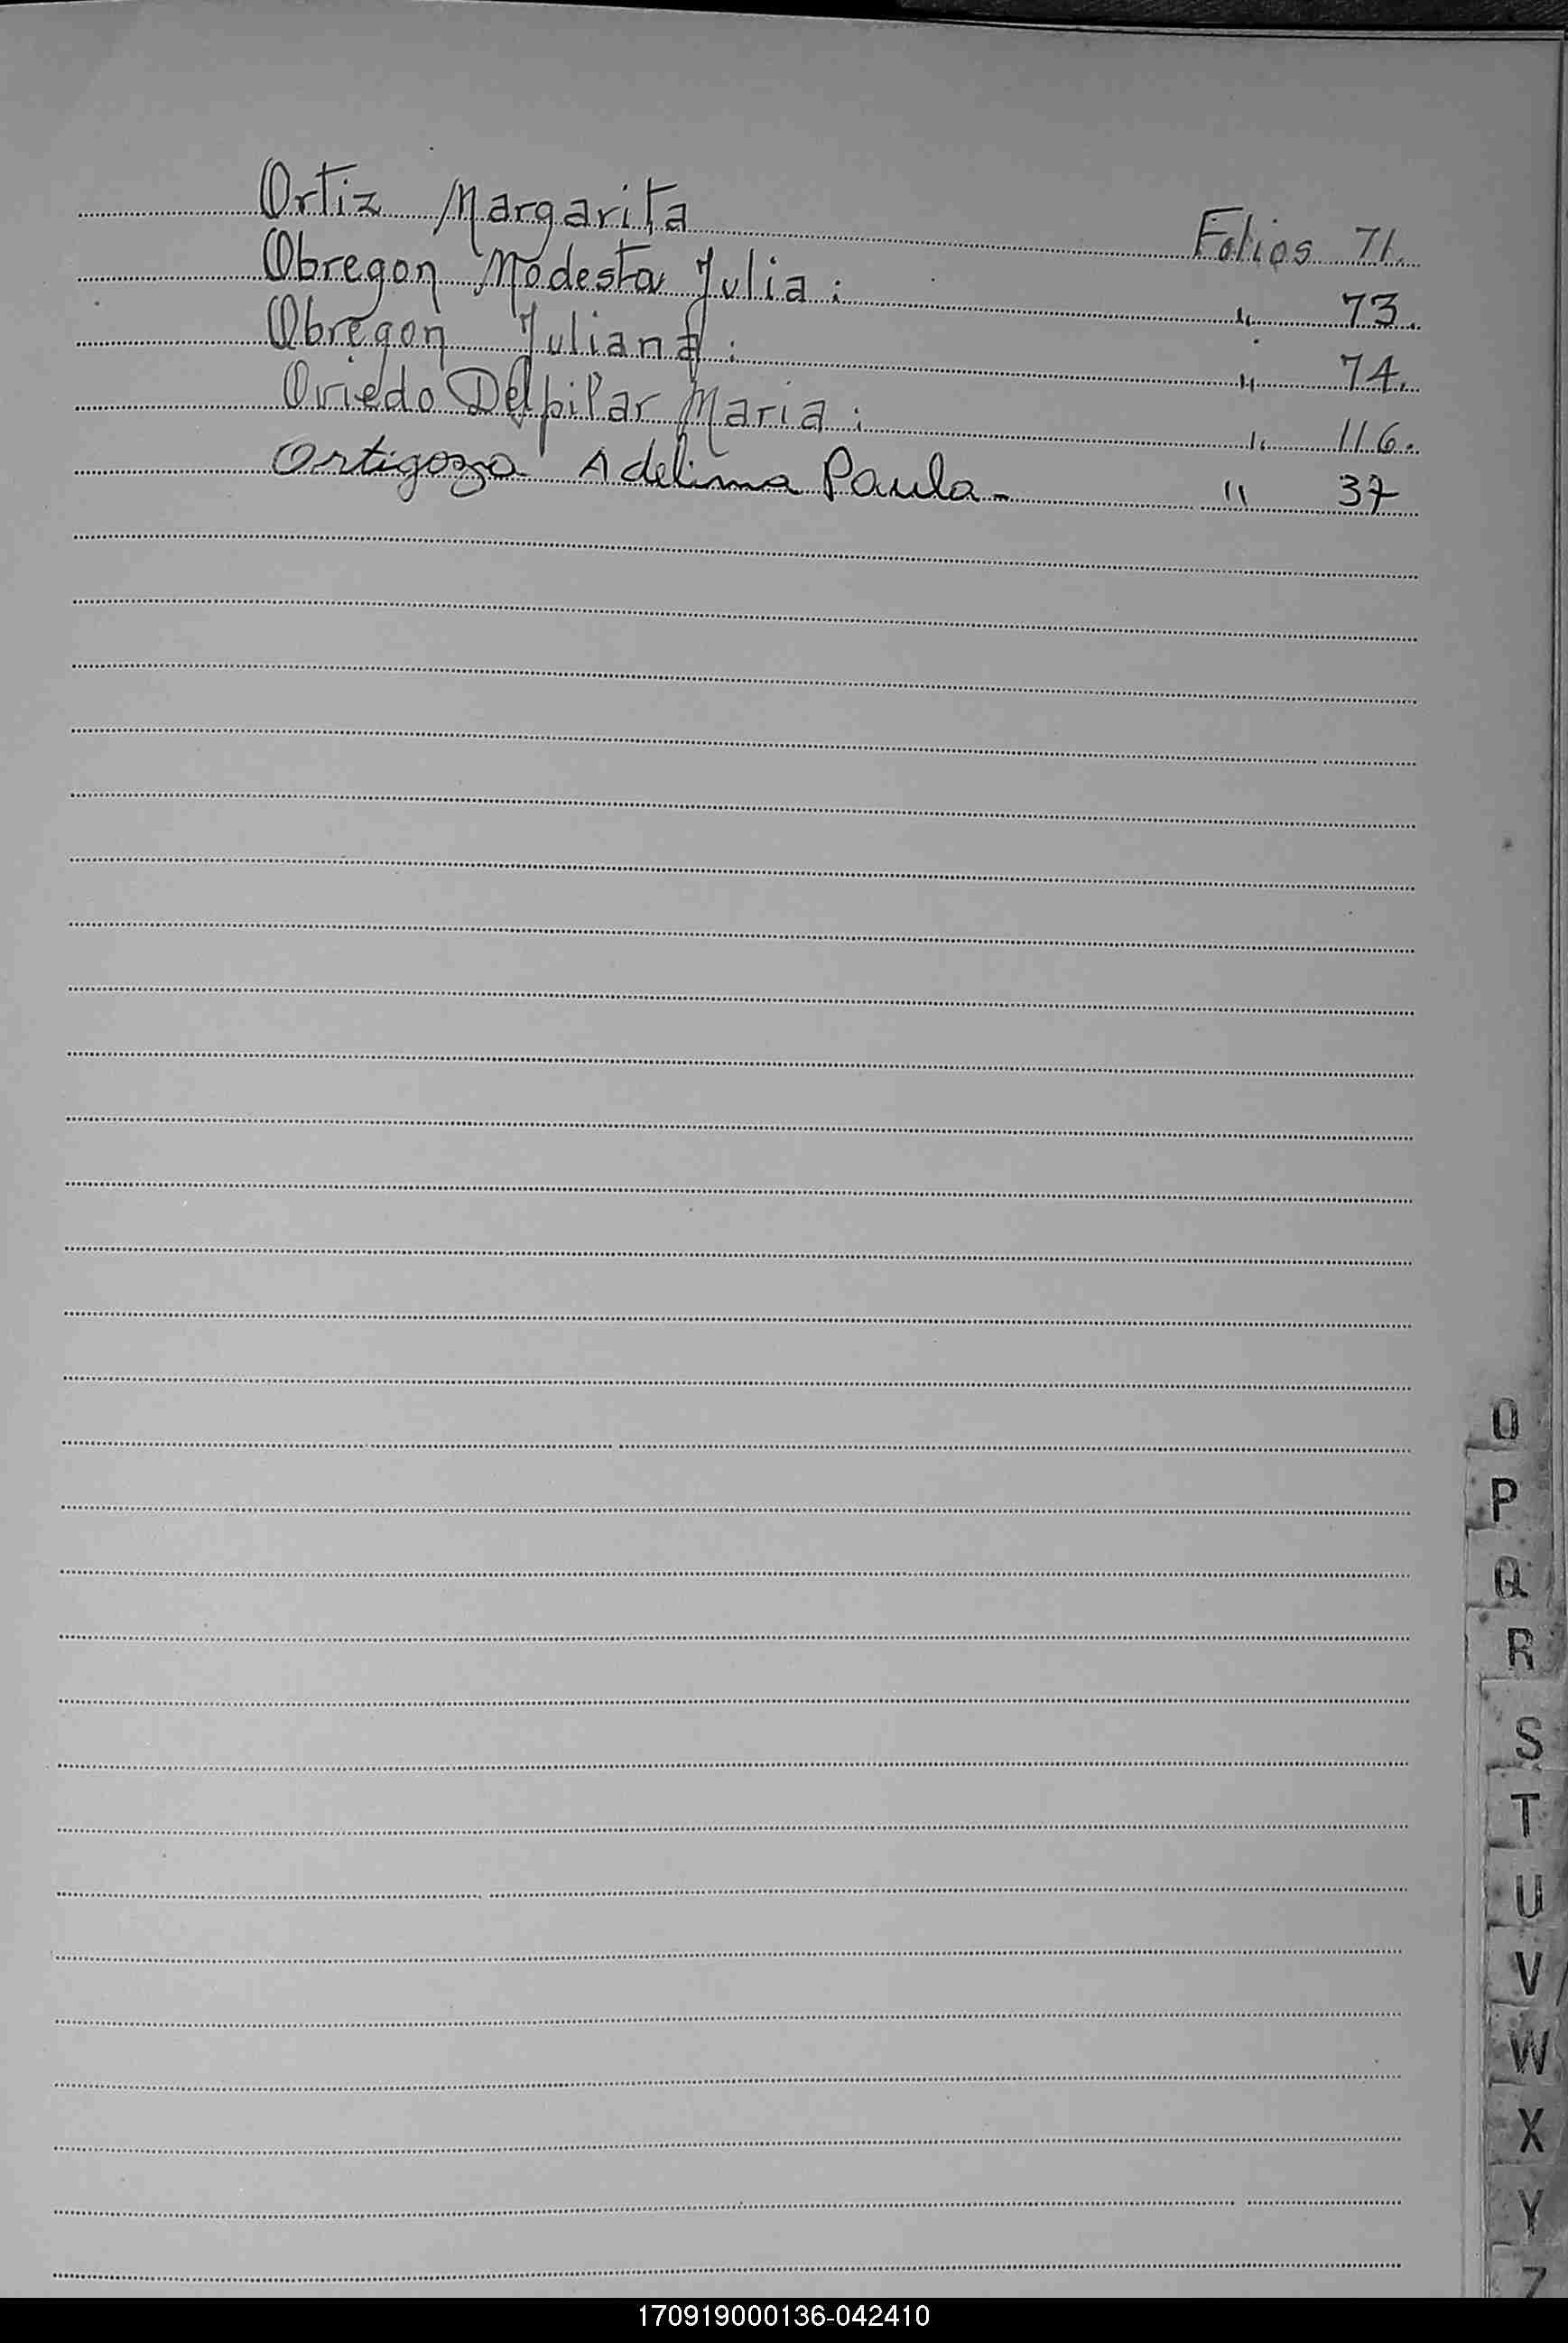 Ortiz Margarita Folios 71.
Obregon Modesta Julia : " 73.
Obregon Juliana : " 74.
Oviedo Delpilar Maria : " 116.
Ortigoza Adelima Paula - " 37
O
P
Q
R
S
T
U
V
W
X
Y
Z
170919000136-042410